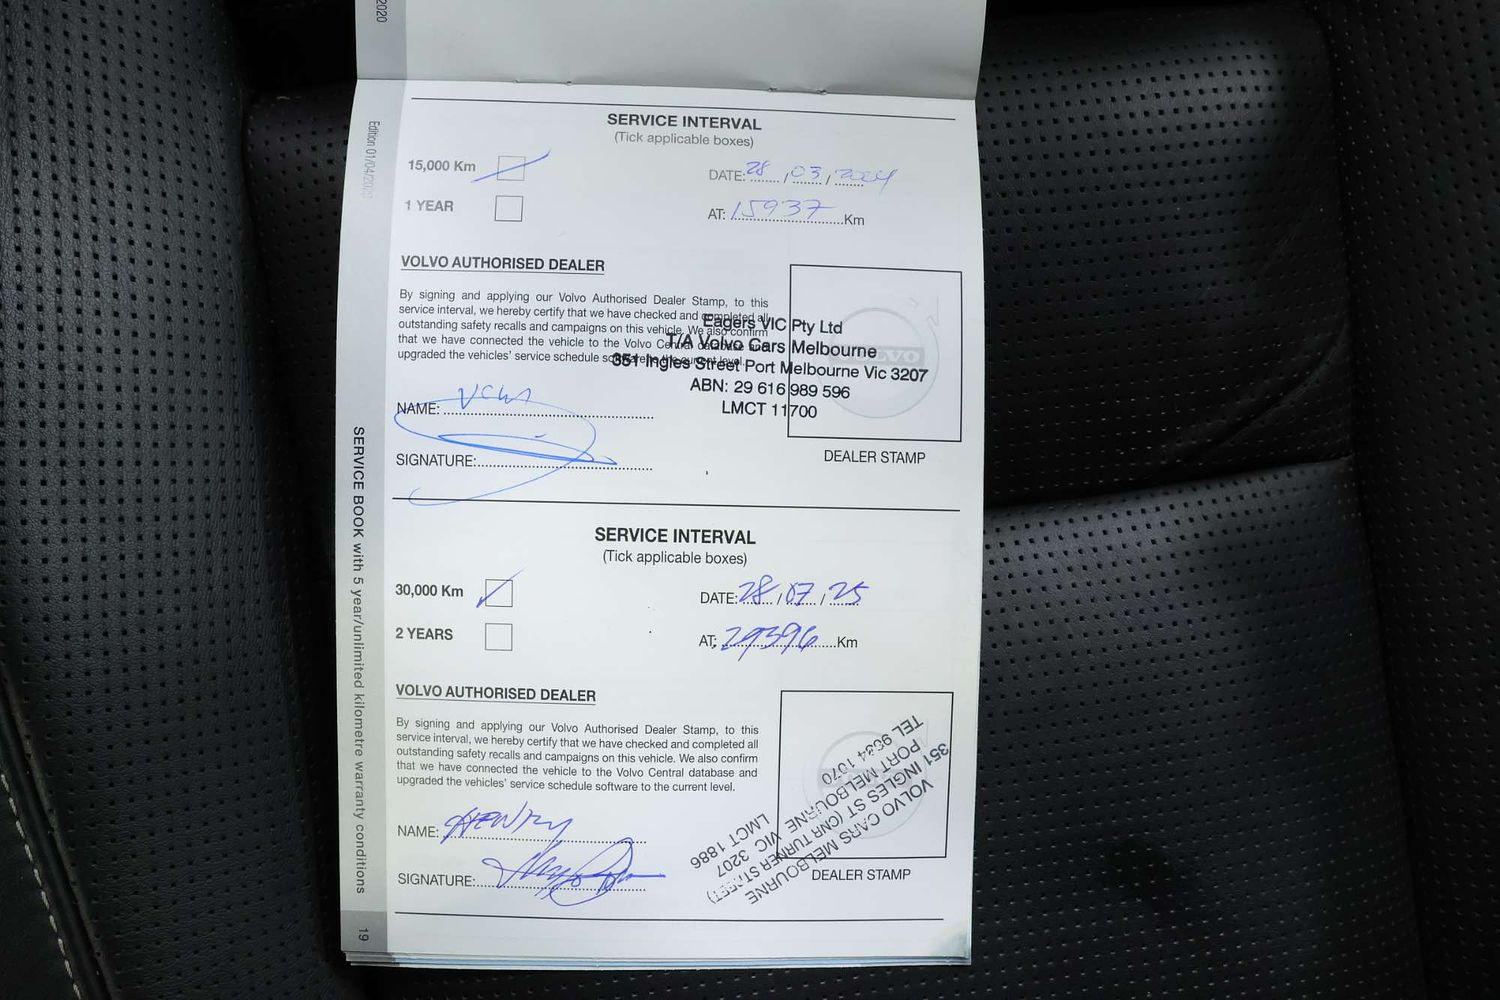 2020
Edition 01/04/2020
SERVICE INTERVAL
(Tick applicable boxes)
15,000 Km
DATE: 28/03/2024
1 YEAR
AT: 15937 Km
VOLVO AUTHORISED DEALER
By signing and applying our Volvo Authorised Dealer Stamp, to this
service interval, we hereby certify that we have checked and completed all
outstanding safety recalls and campaigns on this vehicle. We also confirm
that we have connected the vehicle to the Volvo Central database and
upgraded the vehicles' service schedule software to the current level.
Eagers VIC Pty Ltd
T/A Volvo Cars Melbourne
351 Ingles Street Port Melbourne Vic 3207
ABN: 29 616 989 596
LMCT 11700
VOLVO
NAME:
SIGNATURE:
DEALER STAMP
SERVICE INTERVAL
(Tick applicable boxes)
30,000 Km
DATE: 28/07/25
2 YEARS
AT: 29396 Km
VOLVO AUTHORISED DEALER
By signing and applying our Volvo Authorised Dealer Stamp, to this
service interval, we hereby certify that we have checked and completed all
outstanding safety recalls and campaigns on this vehicle. We also confirm
that we have connected the vehicle to the Volvo Central database and
upgraded the vehicles' service schedule software to the current level.
NAME: HENRY
SIGNATURE:
VOLVO CARS MELBOURNE
351 INGLES ST (CNR TURNER STREET)
PORT MELBOURNE VIC 3207
TEL 9684 1070
LMCT 1886
DEALER STAMP
SERVICE BOOK with 5 year/unlimited kilometre warranty conditions
19